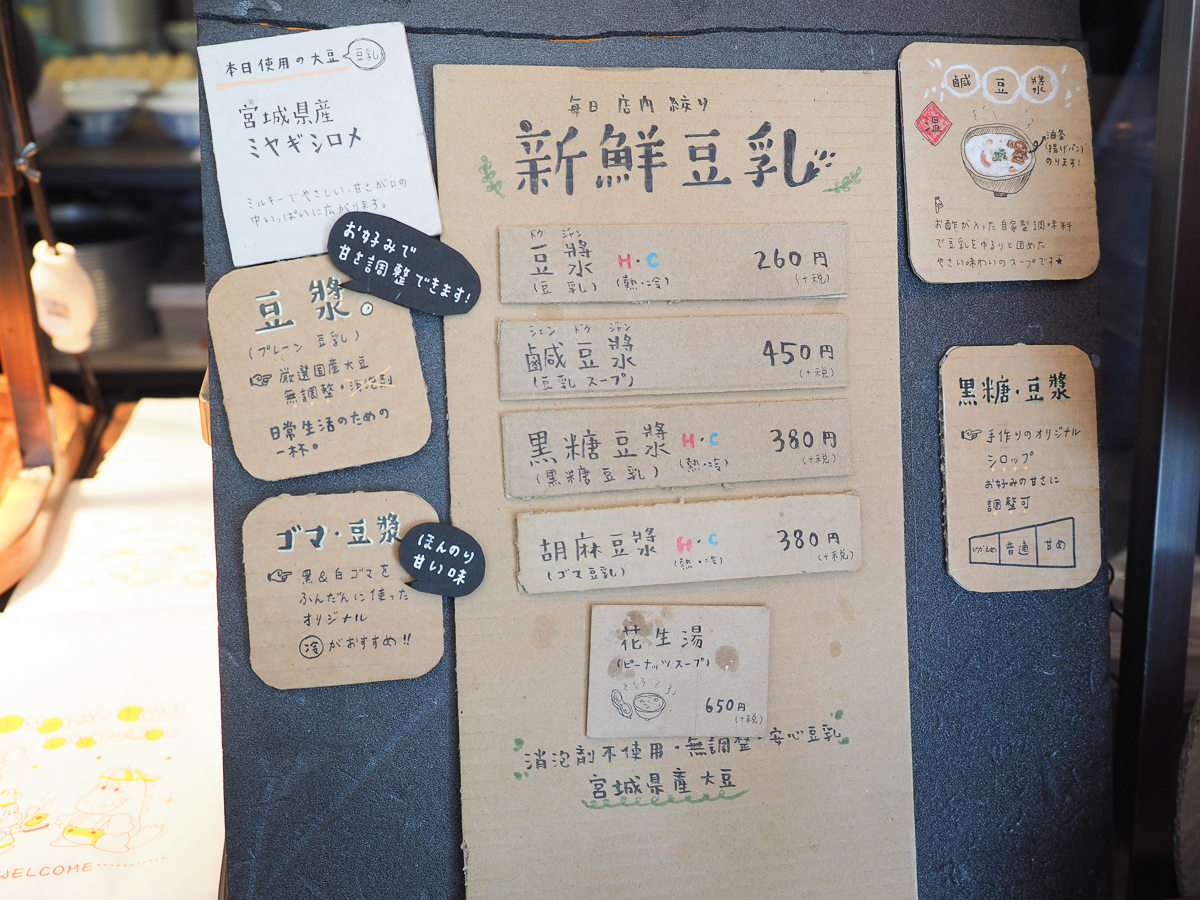 本日使用の大豆 豆乳
宮城県産
ミヤギシロメ
ミルキーでやさしい甘さが口の
中いっぱいに広がります。
お好みで
甘さ調整できます!
豆漿。
(プレーン 豆乳)
厳選国産大豆
無調整・消泡剤
日常生活のための
一杯。
ゴマ・豆漿
黒&白ゴマを
ふんだんに使った
オリジナル
冷がおすすめ!!
ほんのり
甘い味
毎日 店内 絞り
新鮮豆乳
ドウ ジャン
豆漿 H・C 260円
(豆乳) (熱・冷) (+税)
シェン ドウ ジャン
鹹豆漿 450円
(豆乳 スープ) (+税)
黒糖豆漿 H・C 380円
(黒糖豆乳) (熱・冷) (+税)
胡麻豆漿 H・C 380円
(ゴマ豆乳) (熱・冷) (+税)
花生湯
(ピーナッツスープ)
650円
(+税)
消泡剤不使用・無調整・安心豆乳
宮城県産 大豆
鹹豆漿
温
油条
(揚げパン)
のります!
お酢が入った自家製調味料
で豆乳をゆるりと固めた
やさしい味わいのスープです★
黒糖・豆漿
手作りのオリジナル
シロップ
お好みの甘さに
調整可
ひかえめ 普通 甘め
WELCOME